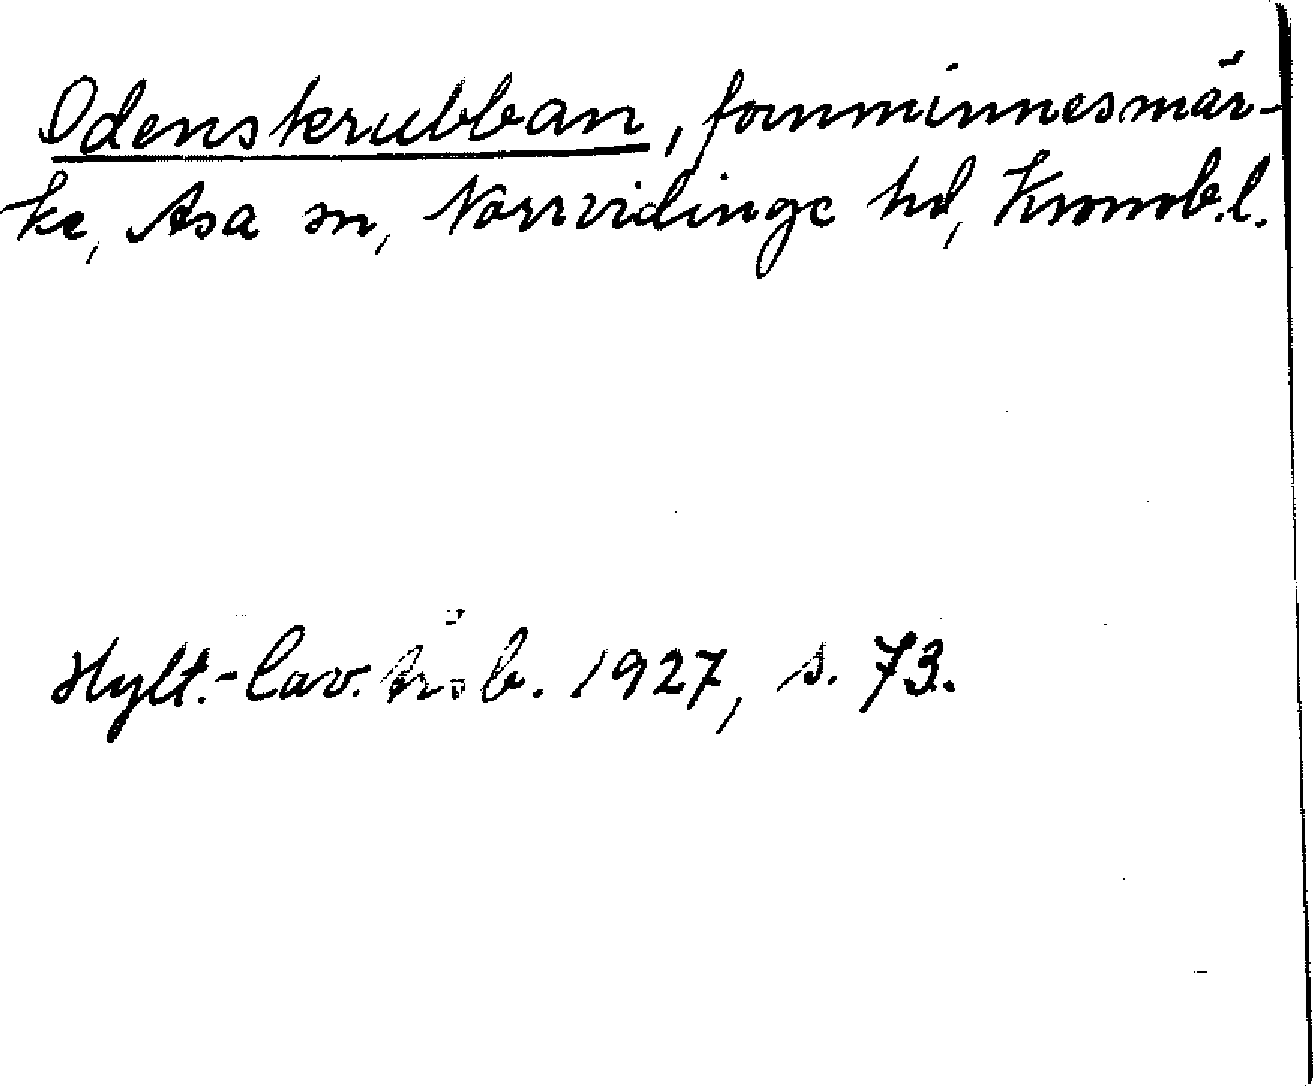 Odenskrubban, fornminnesmär-
ke, Asa sn, Norrvidinge hd, Kronob.l.
Hylt.-Cav. årsb. 1927, s. 73.